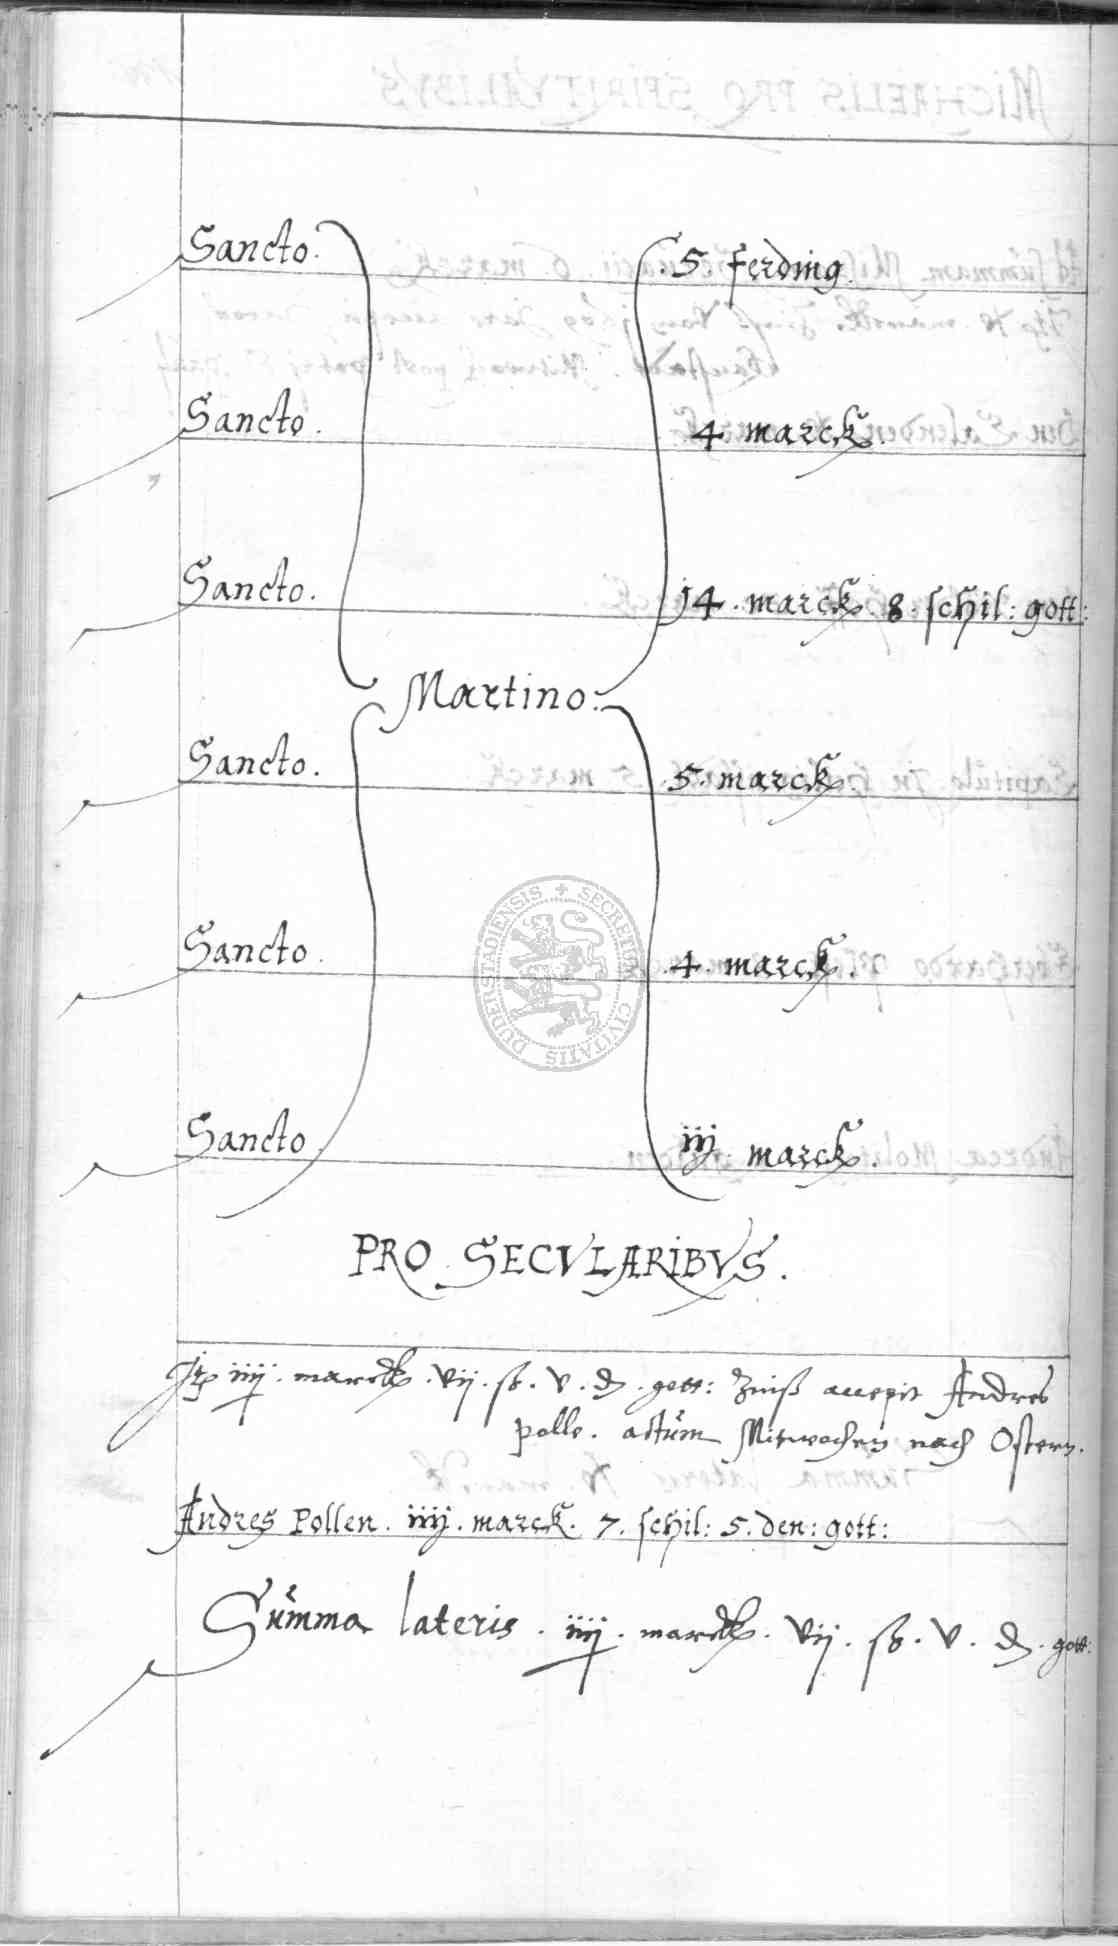 Sancto. .5 ferding.
Sancto. 4 marck.
Sancto. 14. marck 8. schil: gott:
Martino.
Sancto. .5. marck.
Sancto. .4. marck.
Sancto iij marck.
PRO SECVLARIBVS.
Jtp iiij. marck. vij. ß. v. d. gott: Zinß accepit Andres
polle. actum Mitwochen nach Ostern.
Andres Pollen. iiij. marck. 7. schil: 5. den: gott:
Summa lateris. iiij. marck. vij. ß. v. d. gott:
SECRETUM CIVITATIS DUDERSTADIENSIS